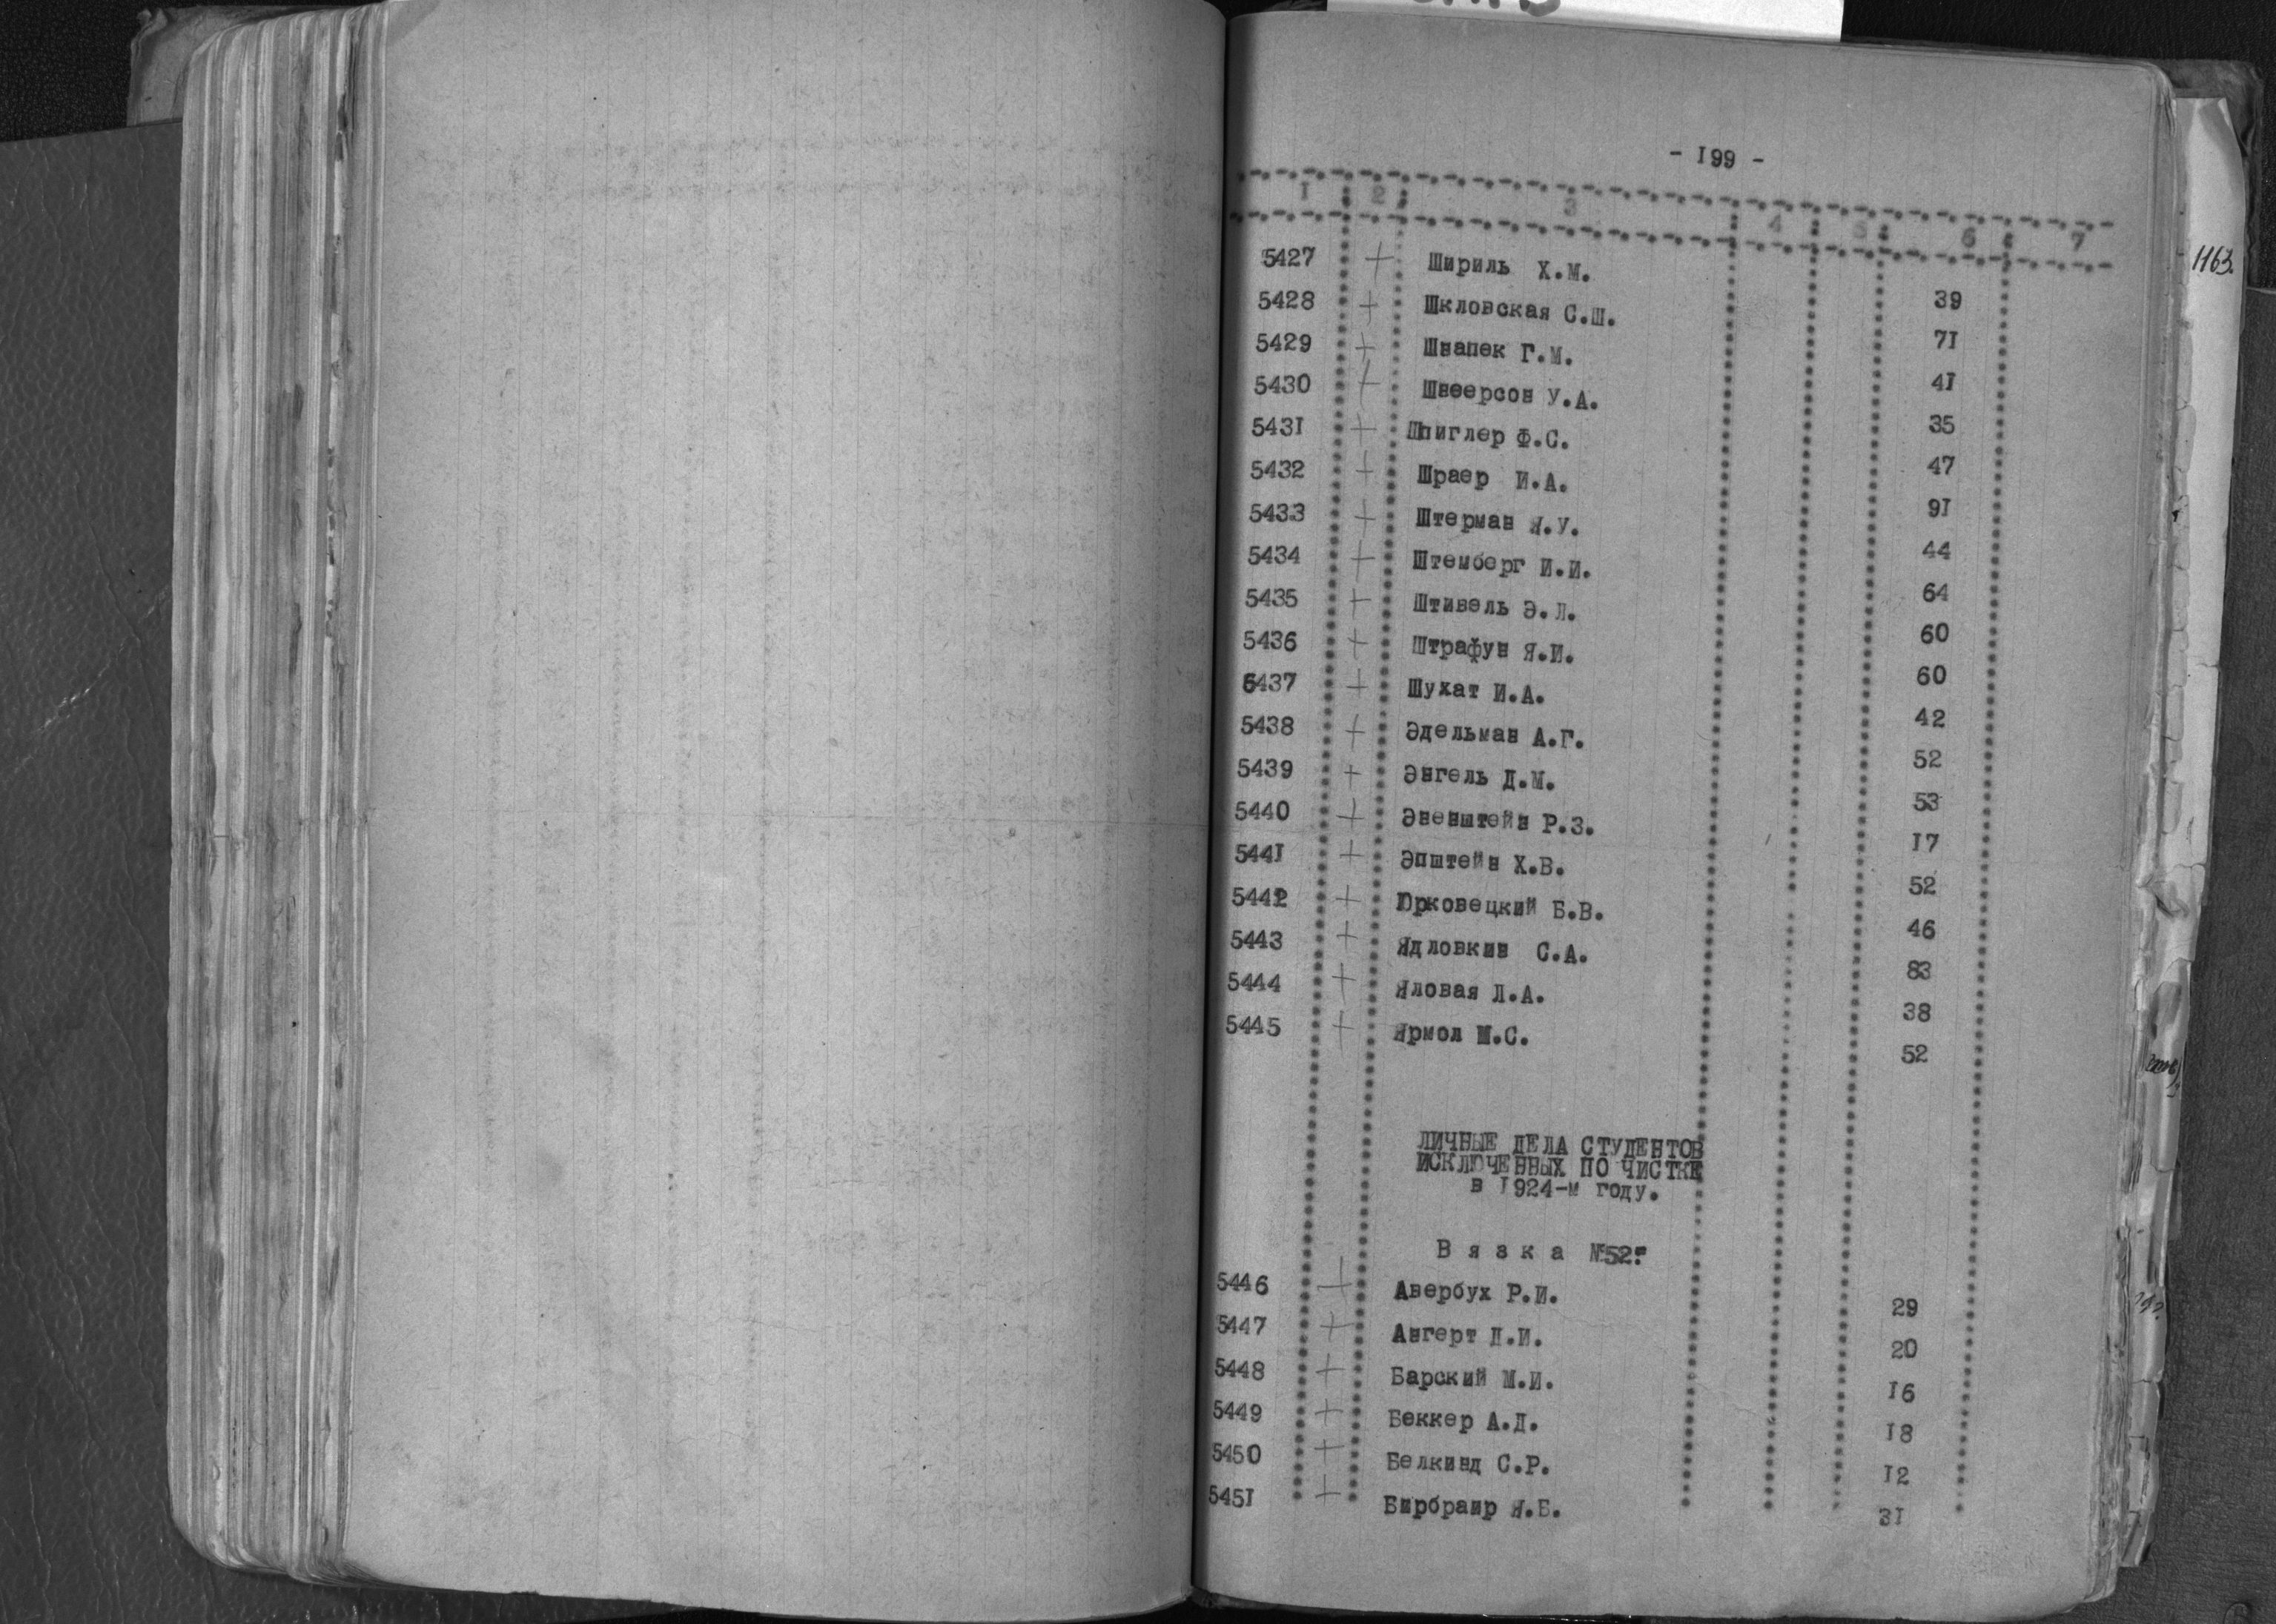 - I99 -
I 2 3 4 5 6 7
1163.
5427 + Шириль Х.М. 39
5428 + Шкловская С.Ш. 7I
5429 + Шнапек Г.М. 4I
5430 + Шнеерсон У.А. 35
543I + Шпиглер Ф.С. 47
5432 + Шраер И.А. 9I
5433 + Штерман Я.У. 44
5434 + Штемберг И.И. 64
5435 + Штивель Э.Л. 60
5436 + Штрафун Я.И. 60
5437 + Шухат И.А. 42
5438 + Эдельман А.Г. 52
5439 + Энгель Д.М. 53
5440 + Эненштейн Р.З. I7
544I + Эпштейн Х.В. 52
5442 + Юрковецкий Б.В. 46
5443 + Ядловкин С.А. 83
5444 + Яловая Л.А. 38
5445 + Ярмол Ш.С. 52
ЛИЧНЫЕ ДЕЛА СТУДЕНТОВ
ИСКЛЮЧЕННЫХ ПО ЧИСТКЕ
в I924-м году.
В я з к а №52.
5446 + Авербух Р.И. 29
5447 + Ангерт Л.И. 20
5448 + Барский М.И. I6
5449 + Беккер А.Д. I8
5450 + Белкинд С.Р. I2
545I + Бирбраир Я.Б. 3I